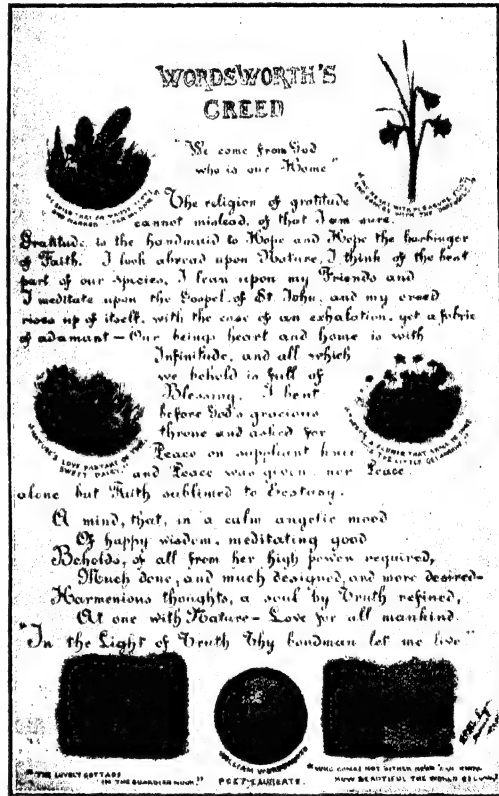 WORDSWORTH'S
CREED
"We come from God
who is our Home"
The religion of gratitude
cannot mislead, of that I am sure.
Gratitude is the handmaid to Hope and Hope the harbinger
of Faith. I look abroad upon Nature, I think of the best
part of our species, I lean upon my Friends and
I meditate upon the Gospel of St. John, and my creed
rises up of itself, with the ease of an exhalation, yet a fabric
of adamant – Our beings heart and home is with
Infinitude, and all which
we behold is full of
Blessing. I bent
before God's gracious
throne and asked for
Peace on suppliant knee
and Peace was given, nor Peace
alone but Faith sublimed to Ecstasy.
SWEET DAISY!"
THE LITTLE CELANDINE"
A mind, that, in a calm angelic mood
Of happy wisdom, meditating good
Beholds, of all from her high powers required,
Much done, and much designed, and more desired–
Harmonious thoughts, a soul by Truth refined,
At one with Nature – Love for all mankind.
"In the Light of Truth Thy bondman let me live"
WILLIAM WORDSWORTH
POET-LAUREATE.
"THE LOVELY COTTAGE
IN THE GUARDIAN NOOK!"
"WHO COMES NOT HITHER NE'ER SHALL KNOW
HOW BEAUTIFUL THE WORLD BELOW"